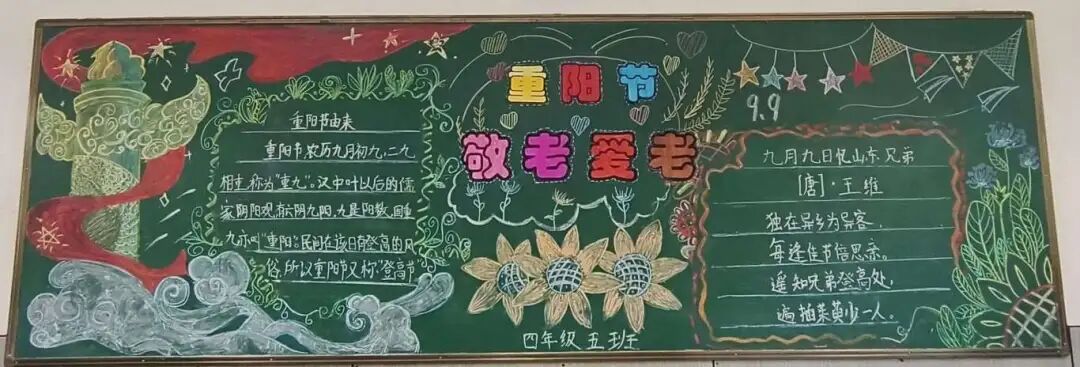 重阳节
敬老爱老
重阳节由来
重阳节,农历九月初九,二九
相重,称为"重九"。汉中叶以后的儒
家阴阳观,有六阴九阳,九是阳数,固重
九亦叫"重阳"。民间在该日有登高的风
俗,所以重阳节又称"登高节
四年级五班
9.9
九月九日忆山东兄弟
[唐]·王维
独在异乡为异客,
每逢佳节倍思亲。
遥知兄弟登高处,
遍插茱萸少一人。